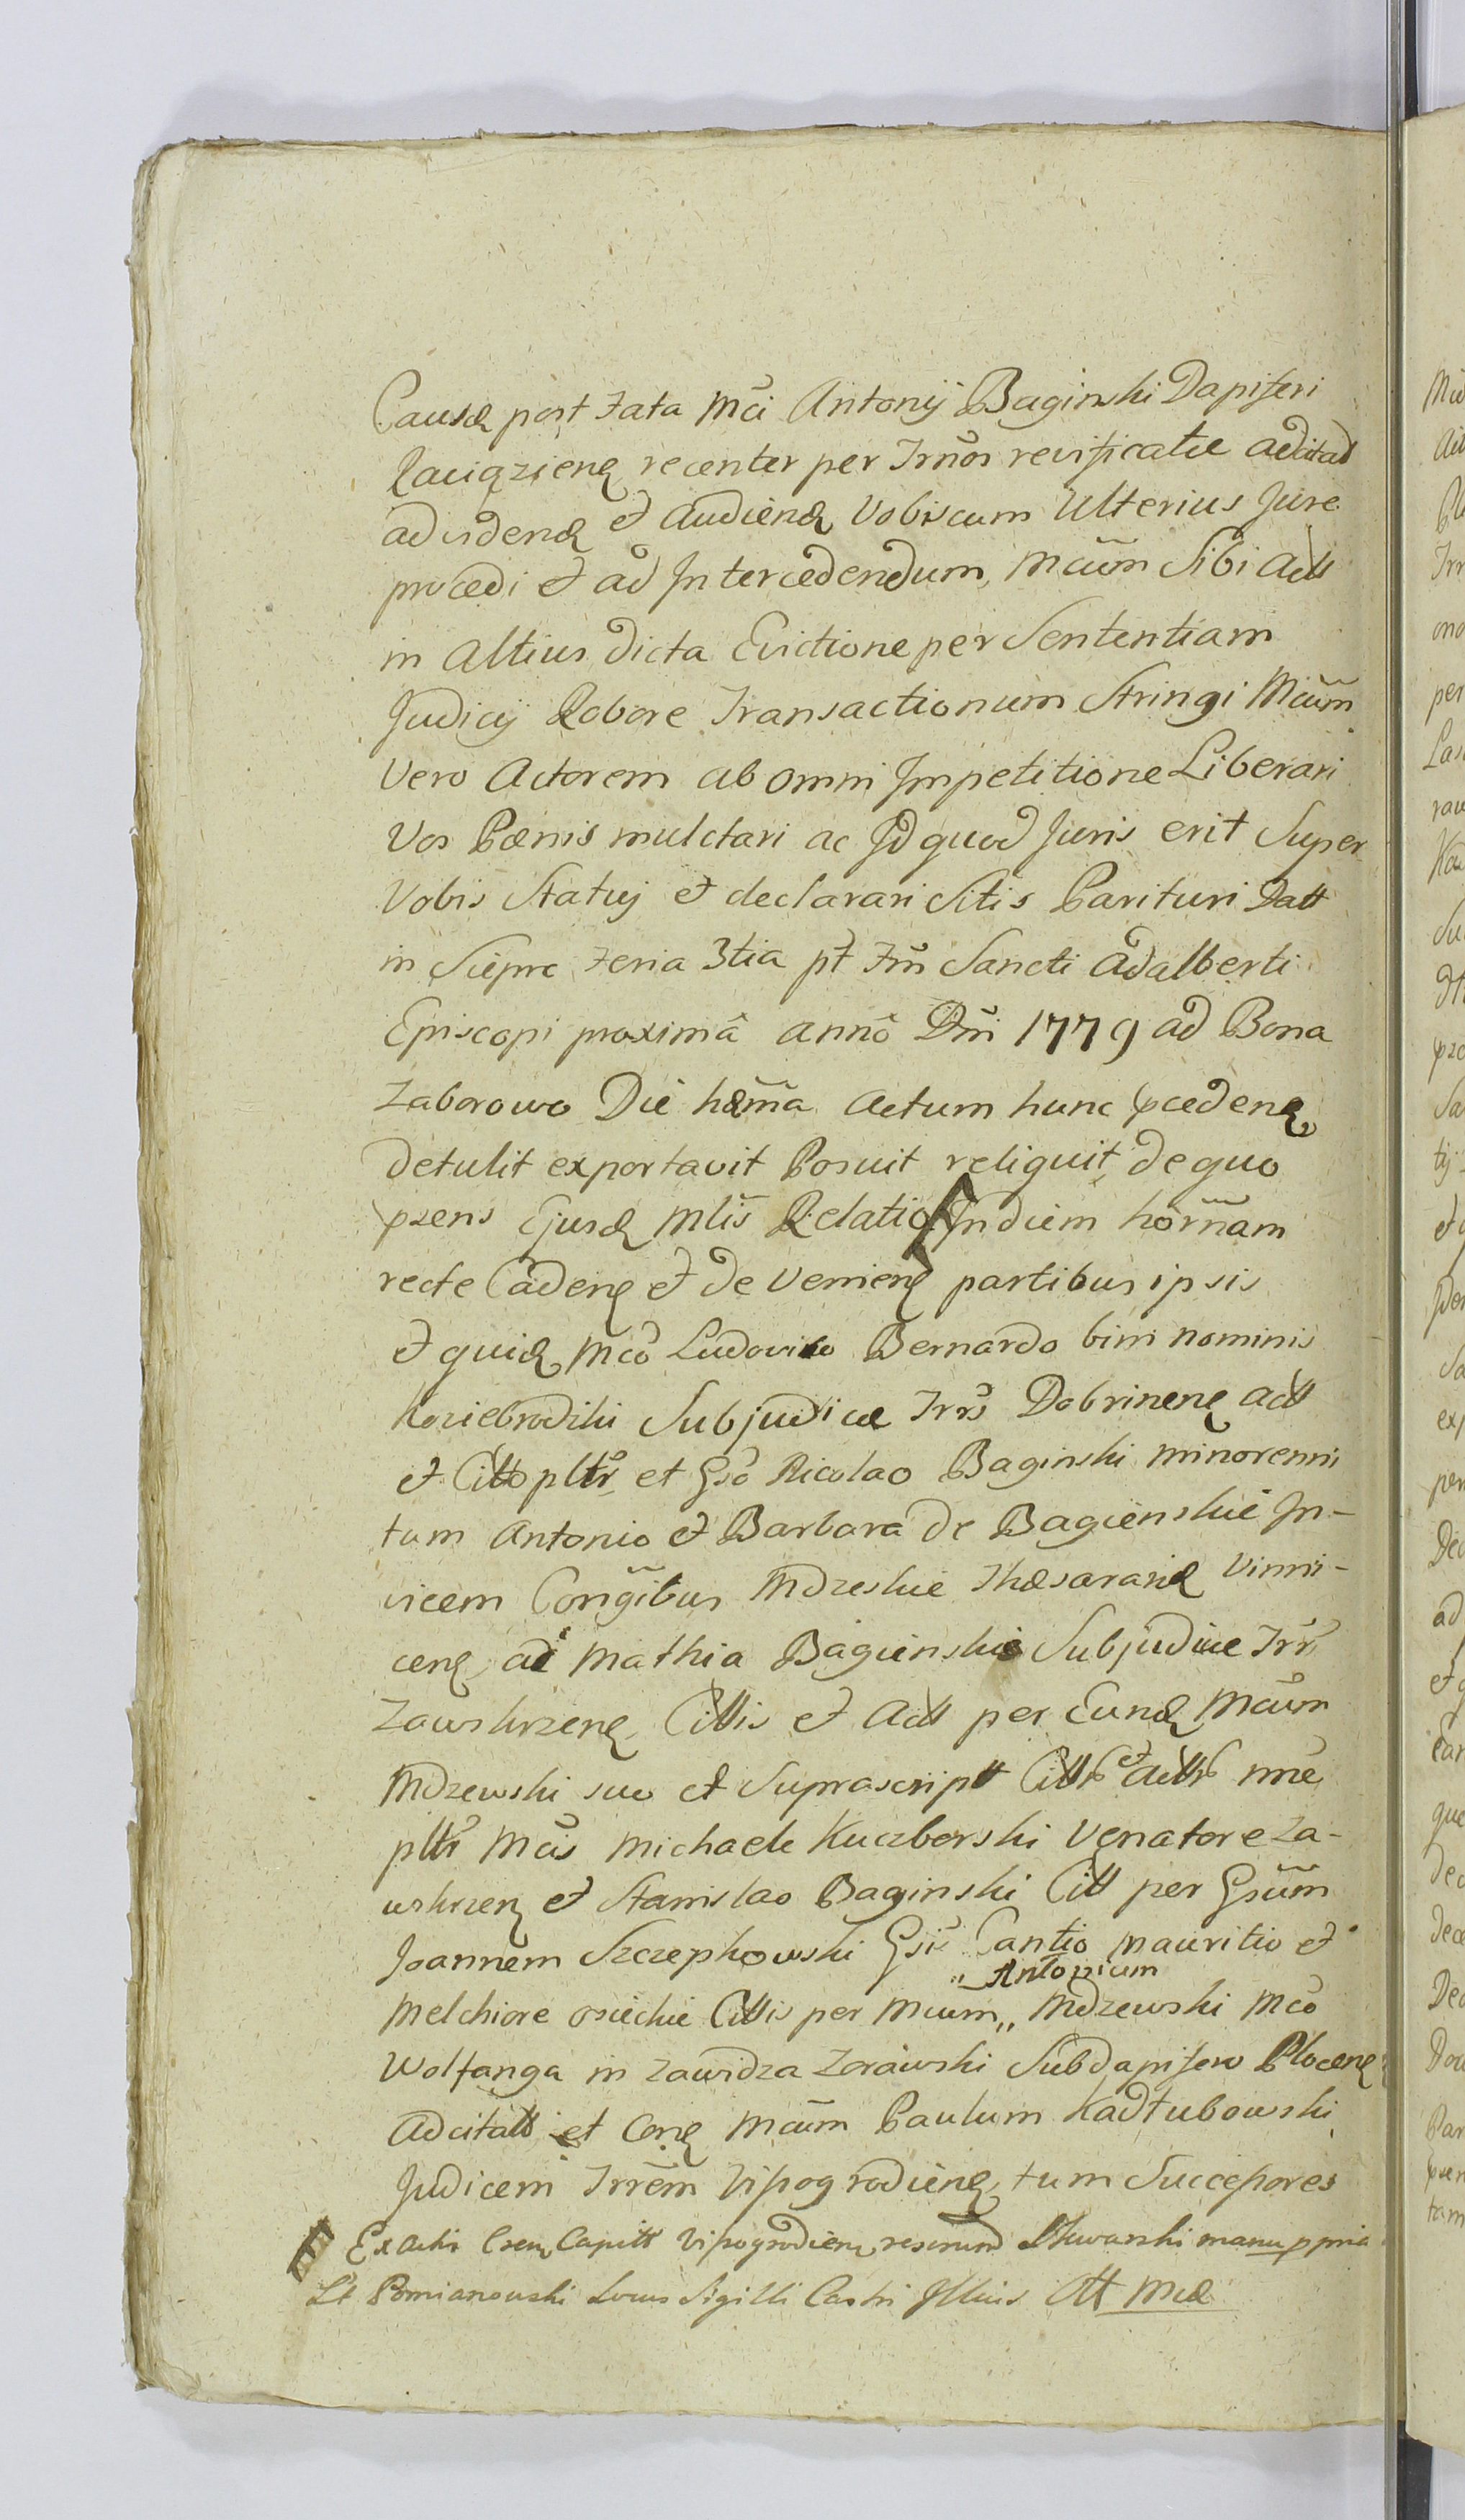 Causæ post Fata Mci Antonij Baginski Dapiferi
Raciązienę recenter per Trnos revificatæ
advidend et audiend Vobiscum Ulterius Jure
procedi et ad Intercedendum, Mcum Sibi Actt
in Altius dicta Evictione per Sententiam
Judicij Robore Transactionum Stringi Mcum
Vero Actorem ab omni Impetitione Liberari
Vos Pænis mulctari ac Id quod Juris erit Super
Vobis Statuj et declarari Sitis Parituri Datt
in Siepre Feria 3tia pt Fm Sancti Adalberti
Episcopi proximâ annô Dni 1779 ad Bona
Zaborowo Die hæma Actum hunc pcedenę
detulit exportavit Posuit reliquit de quo
pzens Ejusd Mlis Relatio In diem hornam
recte Cadenę et de Venienę partibus ipsis
et quid Mco Ludovico Bernardo bini nominis
Koziebrodzki Subjudice Trrs Dobrinenę Actt
et Citto pltr et Gso Nicolao Baginski minorenni
tum Antonio et Barbara de Bagienskie In-
vicem Congibus Mdzeskie Thæsararid Vinni-
cenę ac Mathia Bagienskie Subjudice Trrs
Zawskrzenę Cittis et Actt per Eund Mcum
Mdzewski suo et Suprascriptt Cittr et Acttr nne
pltr Mcis Michaele Kuczborski Venatore Za-
wskrzenę et Stanislao Baginski Citt per Gsum
Joannem Szczepkowski Gsis Cantio Mauritio et
„ Antonium
Melchiore Osieckie Cittis per Mcum „ Mdzewski Mco
Wolfanga in Zawidza Zorawski Subdapifero Plocenę
Adcitatt et Conę Mcum Paulum Kadłubowski
Judicem Trrem Vissogrodienę tum Successores
Ex Actis Cap​itt Vissogrodienę manu ppria
Pomianowski Locus Sigilli Castri Illius